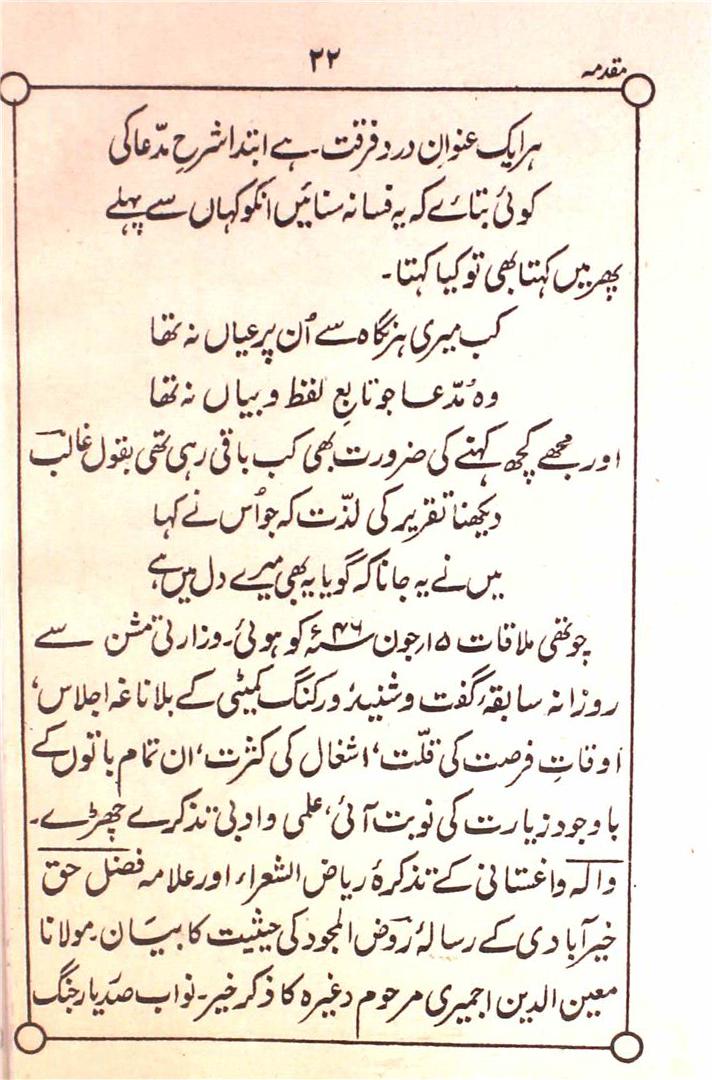 مقدمہ ۲۲
ہر ایک عنوانِ درد فرقت ۔ ہے ابتدا شرحِ مدّعا کی
کوئی بتائے کہ یہ فسانہ سنائیں انکو کہاں سے پہلے
پھر میں کہتا بھی تو کیا کہتا ۔
کب میری ہر نگاہ سے اُن پر عیاں نہ تھا
وہ مُدّعا جو تابعِ لفظ و بیاں نہ تھا
اور مجھے کچھ کہنے کی ضرورت بھی کب باقی رہی تھی بقول غالبؔ
دیکھنا تقریر کی لذّت کہ جو اُس نے کہا
میں نے یہ جانا کہ گویا یہ بھی میرے دل میں ہے
چوتھی ملاقات ۱۵ر جون ۴۶ء کو ہوئی ۔ وزارتی مشن سے
روزانہ سابقۂ گفت و شنید، ورکنگ کمیٹی کے بلاناغہ اجلاس،
اوقاتِ فرصت کی قلّت، اشغال کی کثرت، ان تمام باتوں کے
باوجود زیارت کی نوبت آئی، علمی و ادبی تذکرے چھڑے ۔
والہ واغستانی کے تذکرۂ ریاض الشعراء اور علامہ فضل حق
خیرآبادی کے رسالۂ روض المجود کی حیثیت کا بیان ۔ مولانا
معین الدین اجمیری مرحوم وغیرہ کا ذکر خیر ۔ نواب صدر یار جنگ